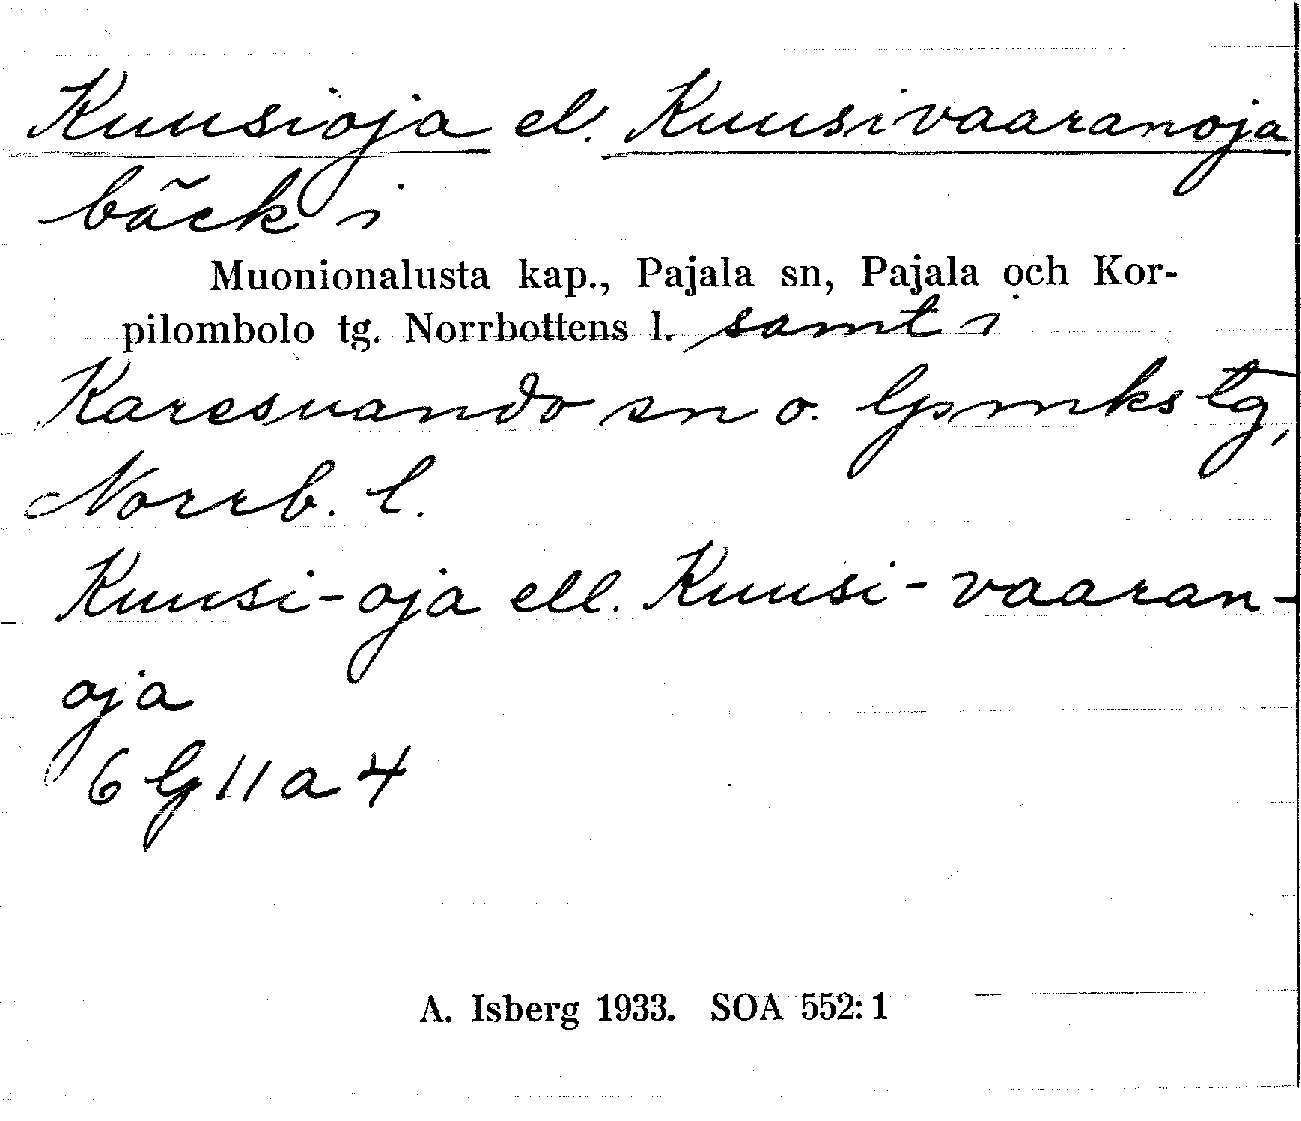 Kuusioja el. Kuusivaaranoja
bäck i
Muonionalusta kap., Pajala sn, Pajala och Kor-
pilombolo tg. Norrbottens l. samt i
Karesuando sn o. lpmks tg,
Norrb. l.
Kuusi-oja ell. Kuusi-vaaran-
oja
6 G 11 a 4
A. Isberg 1933. SOA 552:1